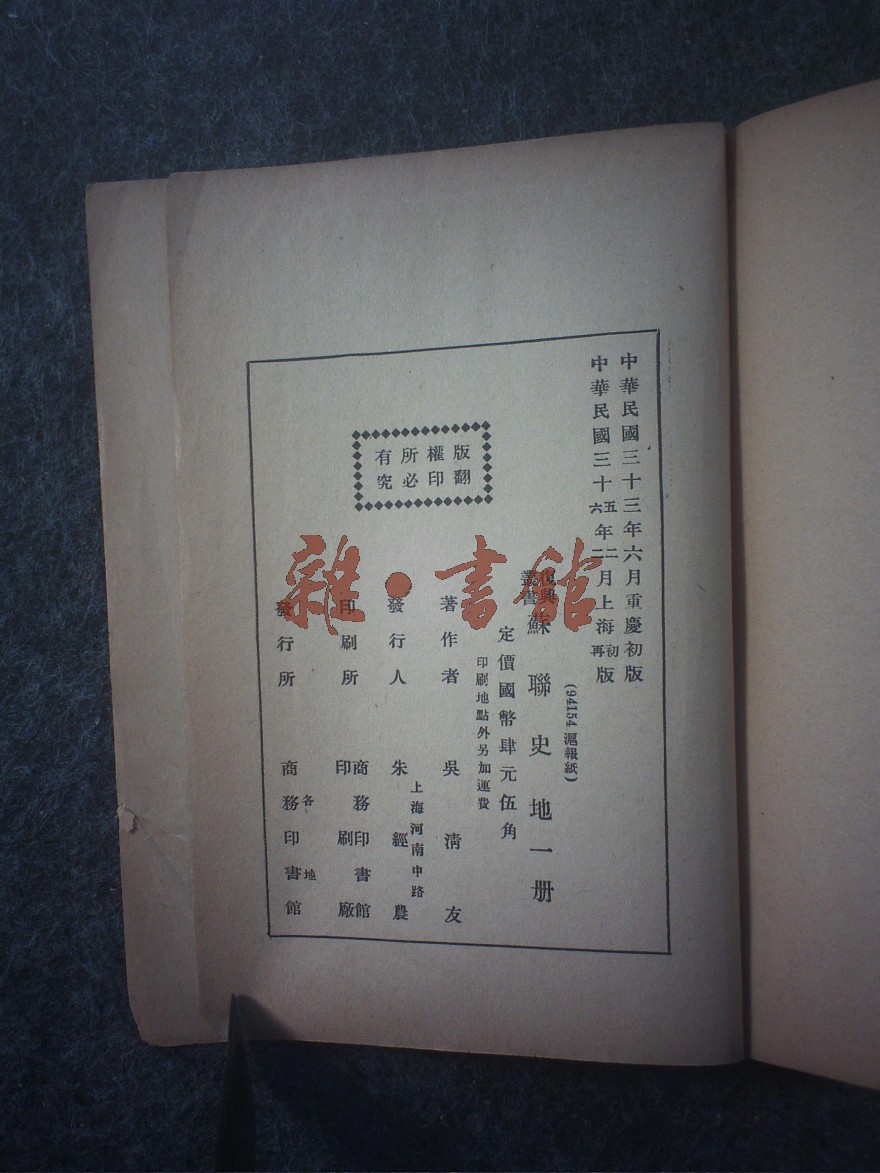 中華民國三十三年六月重慶初版
中華民國三十五六年二二月上海初再版
(94154 滬報紙)
復興叢書 蘇聯史地一册
定價國幣肆元伍角
印刷地點外另加運費
著作者 吳清友
上海河南中路
發行人 朱經農
印刷所 商務印書館印刷廠
發行所 各地商務印書館
版權所有
翻印必究
雜·書館